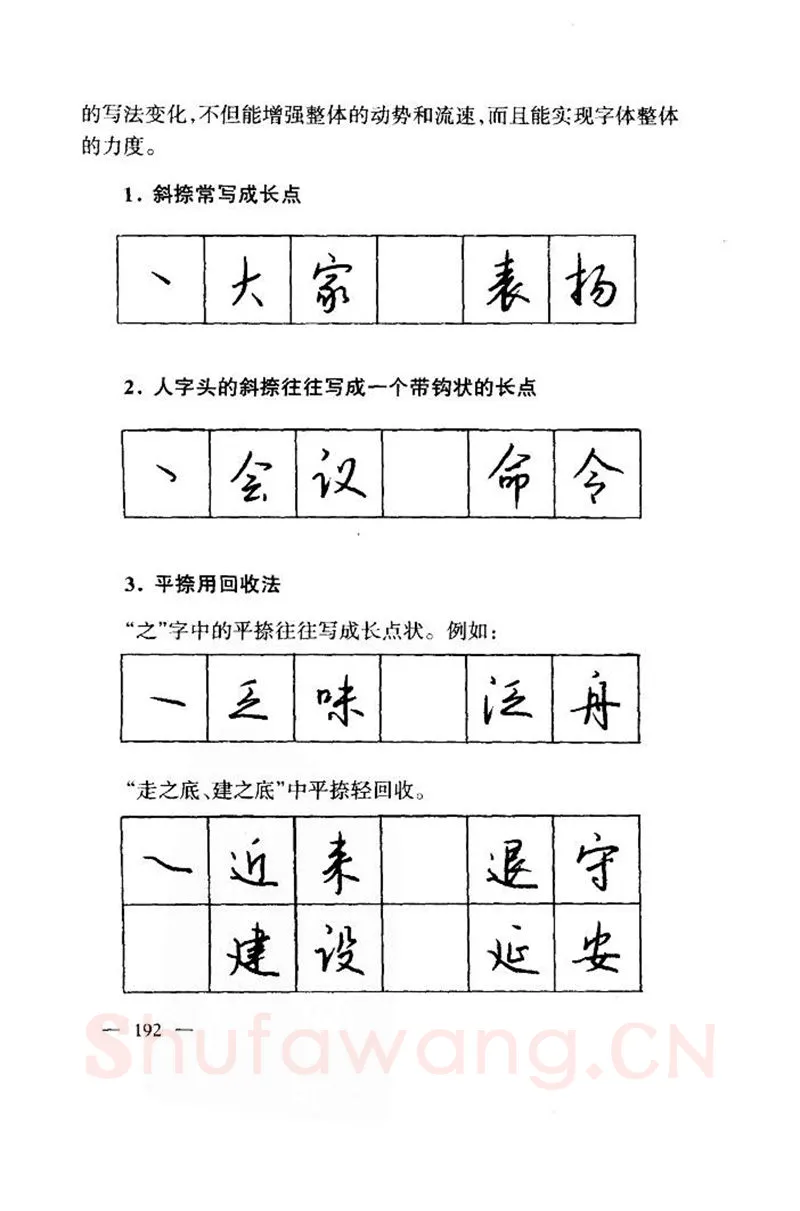 的写法变化,不但能增强整体的动势和流速,而且能实现字体整体
的力度。
1. 斜捺常写成长点
丶 大 家 表 扬
2. 人字头的斜捺往往写成一个带钩状的长点
丶 会 议 命 令
3. 平捺用回收法
“之”字中的平捺往往写成长点状。例如:
乏 味 泛 舟
“走之底、建之底”中平捺轻回收。
近 来 退 守
建 设 延 安
— 192 —
Shufawang.CN